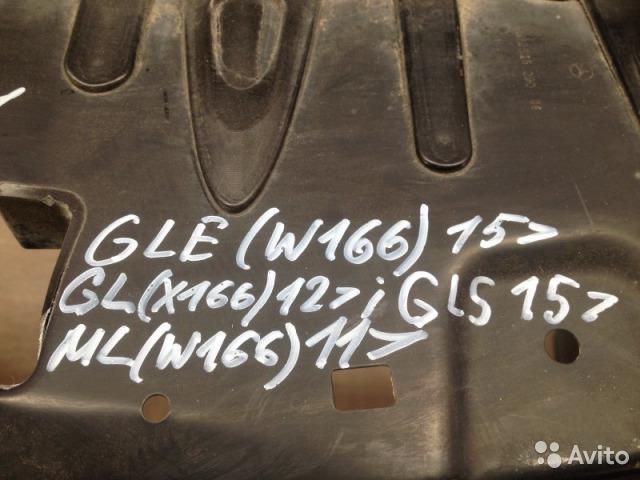 GLE (W166) 15>
GL(X166)12>; GLS 15>
ML(W166) 11>
Avito